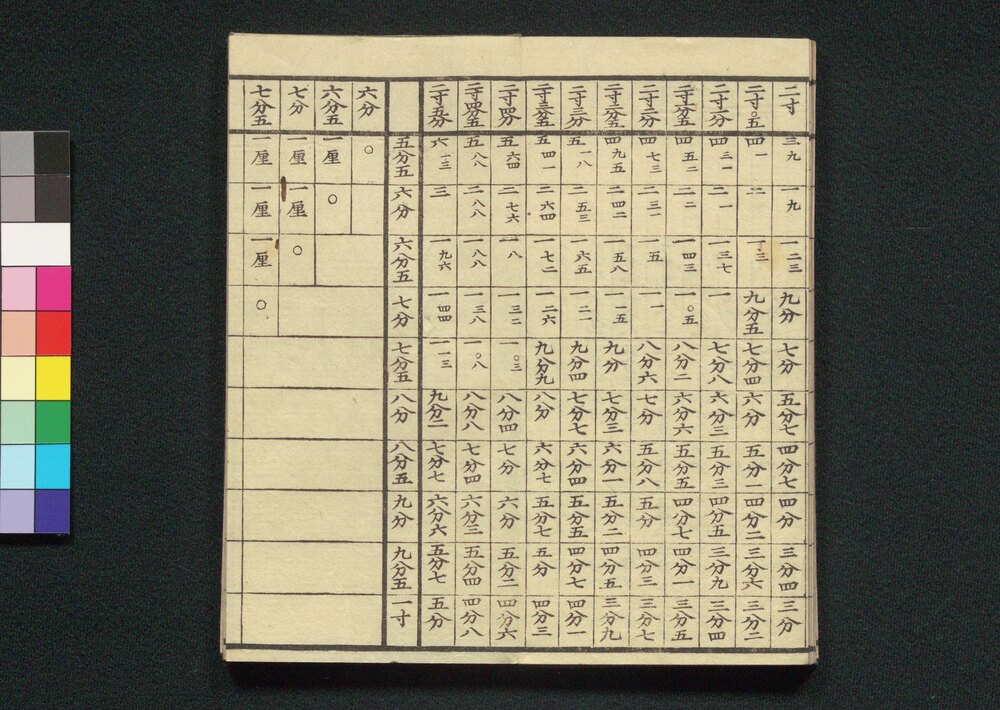 二寸 三九 一九 一二三 九分 七分 五分七 四分七 四分 三分四 三分
二寸〇五 四一 二 一三 九分五 七分四 六分 五分一 四分二 三分六 三分二
二寸一分 四三一 二一 一三七 一 七分八 六分三 五分三 四分五 三分九 三分四
二寸一分五 四五二 二二 一四三 一〇五 八分二 六分六 五分五 四分七 四分一 三分五
二寸二分 四七三 二三一 一五 一一 八分六 七分 五分八 五分 四分三 三分七
二寸二分五 四九五 二四二 一五八 一一五 九分 七分三 六分一 五分二 四分五 三分九
二寸三分 五一八 二五三 一六五 一二一 九分四 七分七 六分四 五分五 四分七 四分一
二寸三分五 五四一 二六四 一七二 一二六 九分九 八分 六分七 五分七 五分 四分三
二寸四分 五六四 二七六 一八 一三二 一〇三 八分四 七分 六分 五分二 四分六
二寸四分五 五八八 二八八 一八八 一三八 一〇八 八分八 七分四 六分三 五分四 四分八
二寸五分 六一三 三 一九六 一四四 一一三 九分二 七分七 六分六 五分七 五分
五分五 六分 六分五 七分 七分五 八分 八分五 九分 九分五 一寸
六分 〇
六分五 一厘 〇
七分 一厘 一厘 〇
七分五 一厘 一厘 一厘 〇